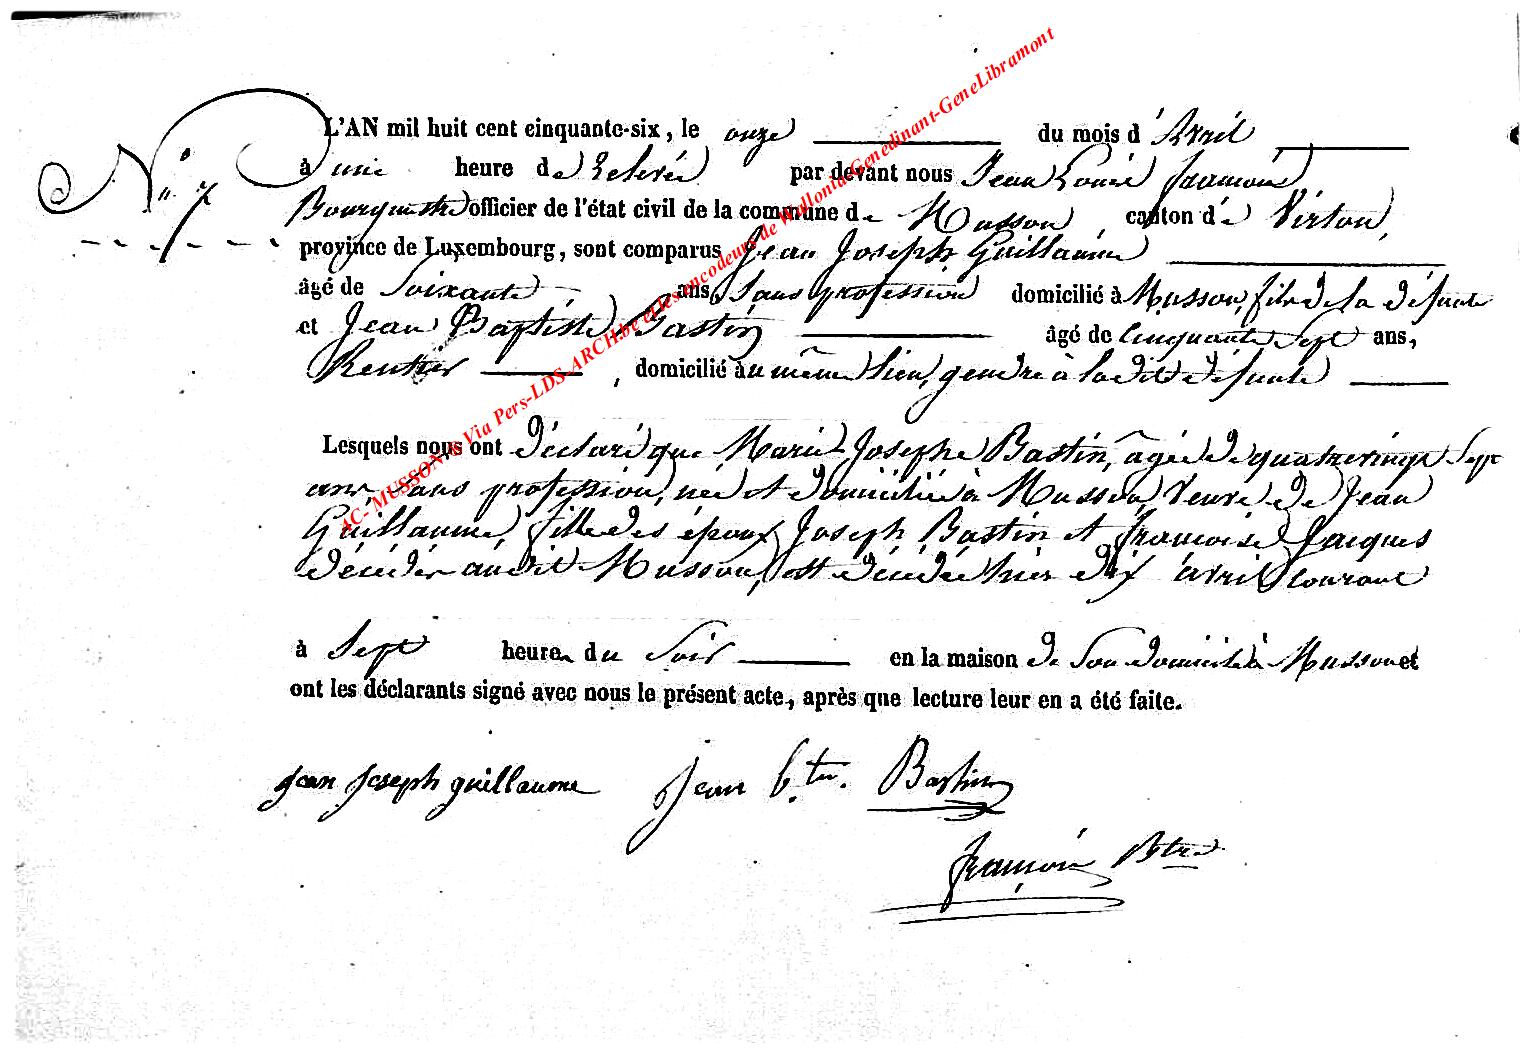 N° 7
L'AN mil huit cent cinquante-six, le onze du mois d'Avril
à une heure de Relevée par devant nous Jean Louis François
Bourgmestre officier de l'état civil de la commune de Musson, canton de Virton,
province de Luxembourg, sont comparus Jean Joseph Guillaume
âgé de Soixante ans, Sans profession domicilié à Musson, fils de la défunte
et Jean Baptiste Bastin âgé de Cinquante Sept ans,
Rentier, domicilié au même lieu, gendre à la dite défunte
Lesquels nous ont déclaré que Marie Joseph Bastin, âgée de quatrevingt Sept
ans, sans profession, née et domiciliée à Musson, Veuve de Jean
Guillaume, fille des époux Joseph Bastin et françoise Jacques
décédés audit Musson, est décédée hier dix avril courant
à Sept heures du Soir en la maison de Son domicile à Musson et
ont les déclarants signé avec nous le présent acte, après que lecture leur en a été faite.
jean joseph guillaume Jean b.te. Bastin
françois Btre
AC- MUSSON & Via Pers-LDS-ARCH.be et les encodeurs de Wallonia-Genedinant-GeneLibramont